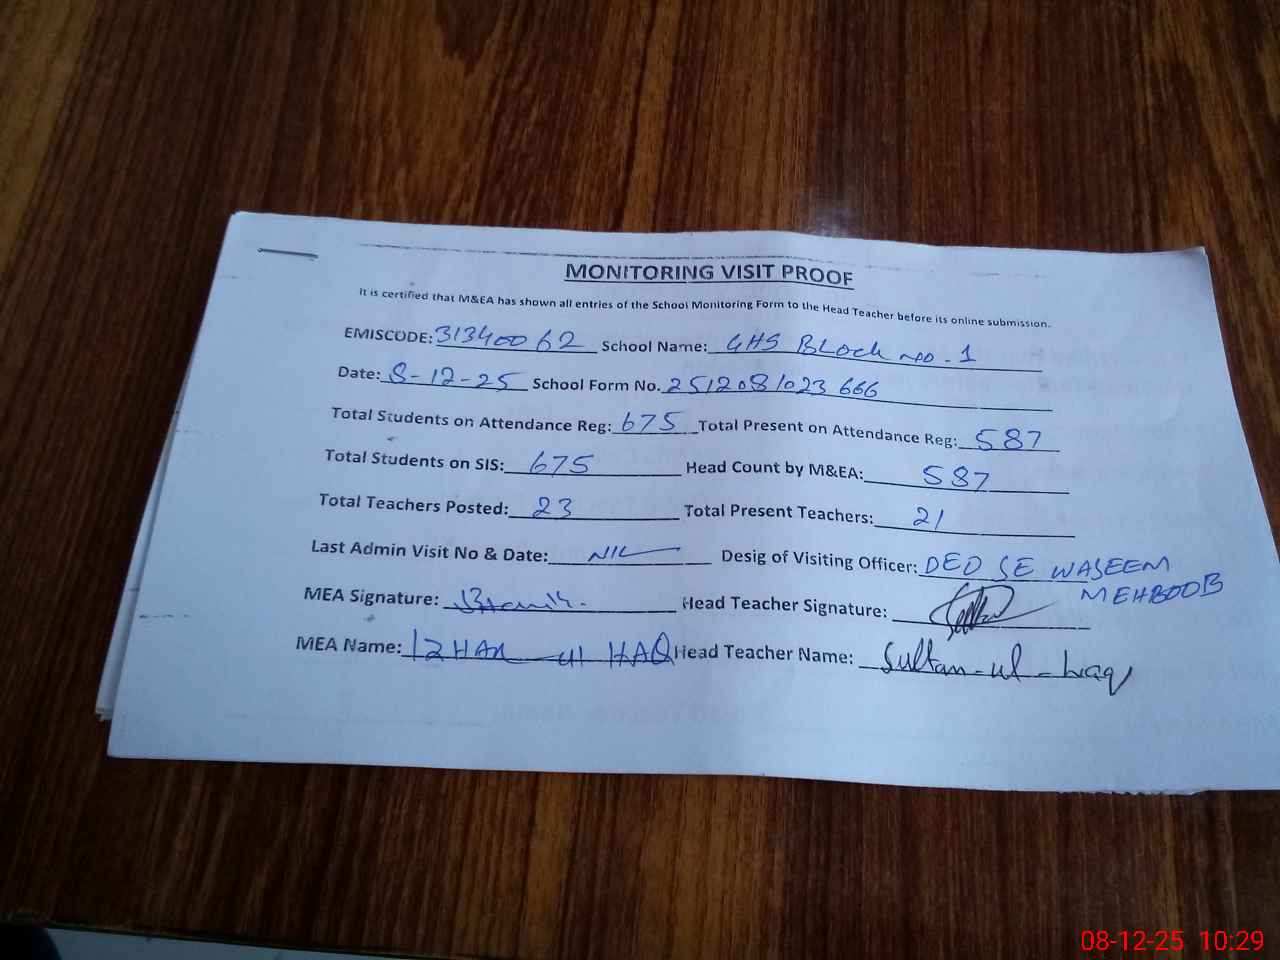 MONITORING VISIT PROOF
It is certified that M&EA has shown all entries of the School Monitoring Form to the Head Teacher before its online submission.
EMISCODE: 31340062 School Name: GHS BLock no. 1
Date: 8-12-25 School Form No. 2512081023666
Total Students on Attendance Reg: 675 Total Present on Attendance Reg: 587
Total Students on SIS: 675 Head Count by M&EA: 587
Total Teachers Posted: 23 Total Present Teachers: 21
Last Admin Visit No & Date: NIL Desig of Visiting Officer: DEO SE WASEEM
MEHBOOB
MEA Signature: Head Teacher Signature:
MEA Name: IZHAR ul HAQ Head Teacher Name: Sultan-ul-haq
08-12-25 10:29